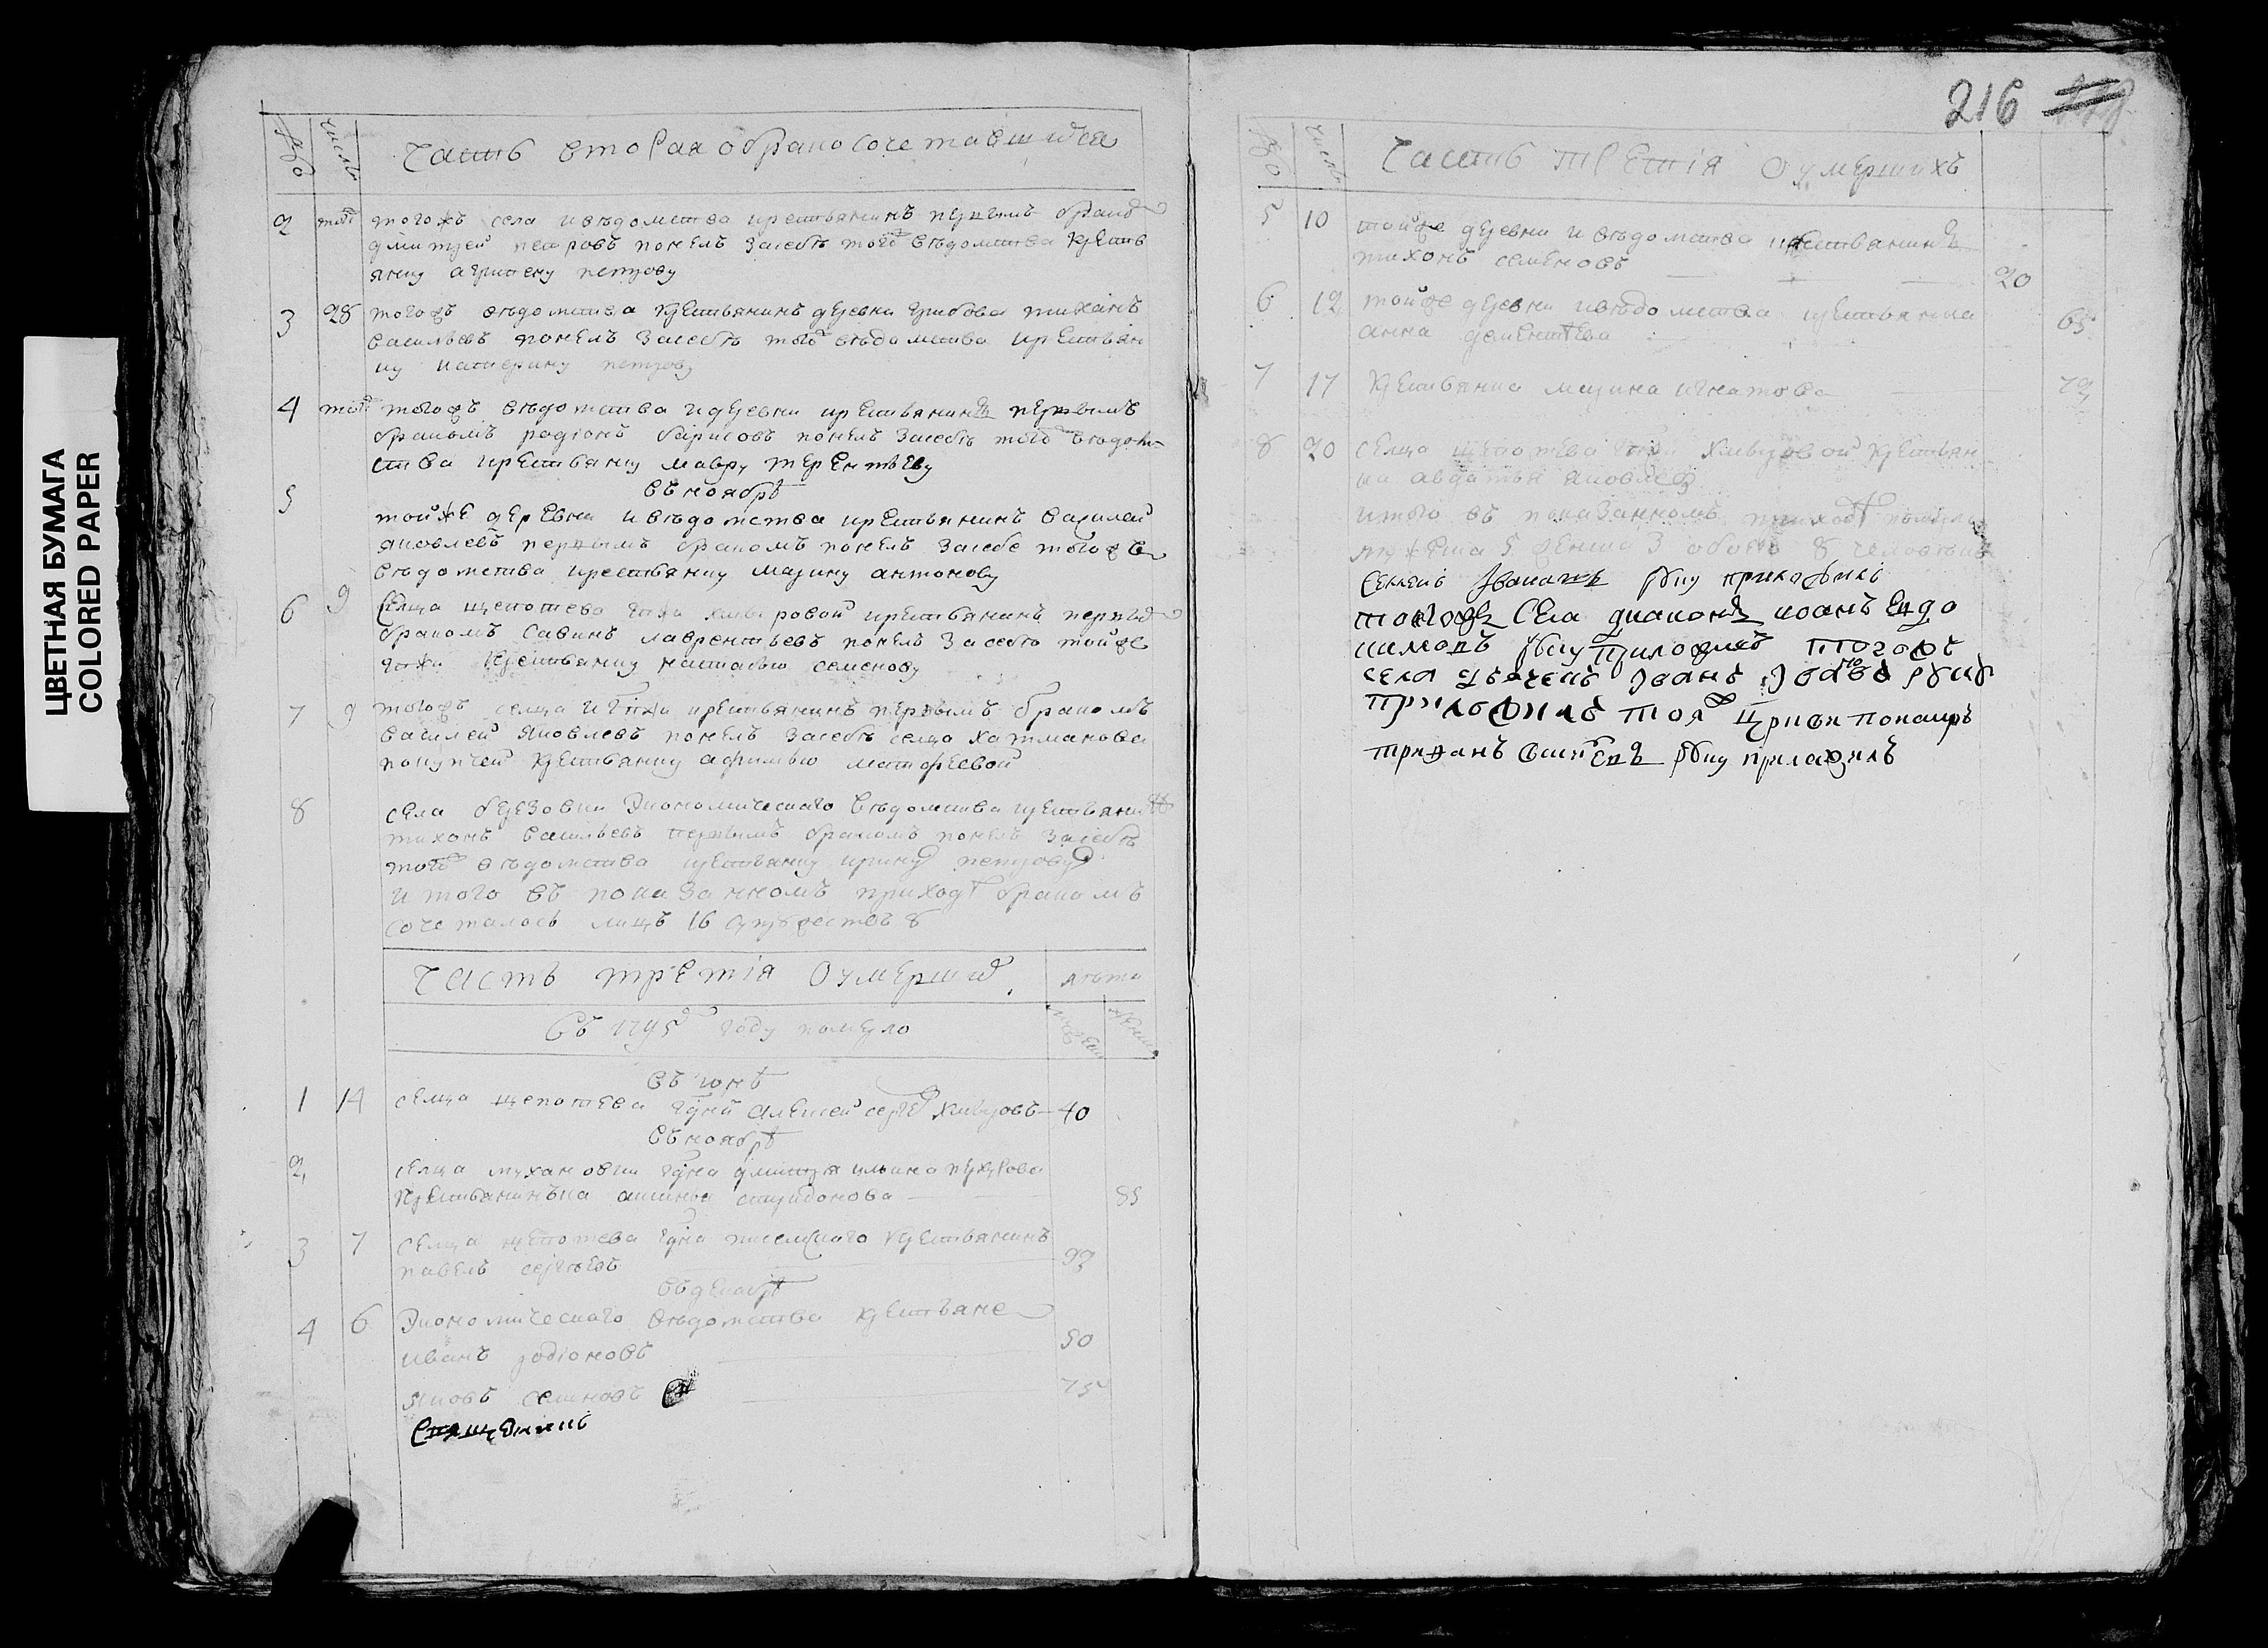 ЦВЕТНАЯ БУМАГА
COLORED PAPER
число
часть вторая о браносочетавшихся
2 того тогожъ села и вѣдомства крестьянинъ первымъ браком
дмитреи петровъ понелъ засебѣ того вѣдомства крестъ
янку агрипену петрову
3 28 тогожъ вѣдомства крестьянинъ деревни грибова тиханъ
васильевъ понелъ засебѣ того вѣдомства крестьян
ку катерину петрову
4 того тогожъ вѣдомства идеревни крестьянинъ первымъ
бракомъ родіонъ борисовъ понелъ засебѣ того вѣдом
ства крестьянку мавру терентьеву
въ ноябрѣ
5 тойже деревни и вѣдомства крестьянинъ василей
яковлевъ первымъ бракомъ понелъ засебе тогожъ
вѣдомства крестьянку марину антонову
6 9 Селца щепотева гпжи хвыровой крестьянинъ первыи
бракомъ савинъ лаврентьевъ понелъ засебю тойже
гпжи крестьянку настасью семенову
7 9 тогожъ селца и гпжи крестьянинъ первымъ бракомъ
василей яковлевъ понелъ засебѣ селца хатманова
крестьянку афимью матфеевой
8 села березовки Экономическаго вѣдомства крестьянинъ
тихонъ васильевъ первымъ бракомъ понелъ засебѣ
того вѣдомства крестьянку ирину петрову
и того въ показанномъ приходѣ бракомъ
сочеталось лицъ 16 супружествъ 8
Часть третія о умерших
лѣта
въ 1795 году померло
въ іюнѣ
1 14 селца щепотева гднъ алексей сергѣ хвыровъ 40
въ ноябрѣ
2 селца мухановки гдна дмитрея ильина
крестьянинъка аксинья спиридонова 85
3 7 селца щепотева гдна крестьянинъ
павелъ сергѣевъ
въ декабрѣ
4 6 Экономическаго вѣдомства крестьяне
иванъ родіоновъ 50
яковъ семновъ 75
Священникъ
216
число
Часть третія о умершихъ
5 10 тойже деревни и вѣдомства крестьянинъ
тихонъ семеновъ 20
6 12 тойже деревни и вѣдомства крестьянка
анна дементева 65
7 17 крестьянка марина игнатова
8 20 селца щепотева гпжи хвыровой крестьян
ка авдатья яковлев
итого въ показанномъ приходѣ померло
мужеска 5 женска 3 обоего 8 человѣкъ
Семенъ Івановъ руку приложилъ
тогожъ села диаконъ иоанъ евдо
кимовъ руку приложилъ тогожъ
села дьячекъ Іванъ Івановъ руку
приложилъ тоя церкви понамръ
руку прилажилъ